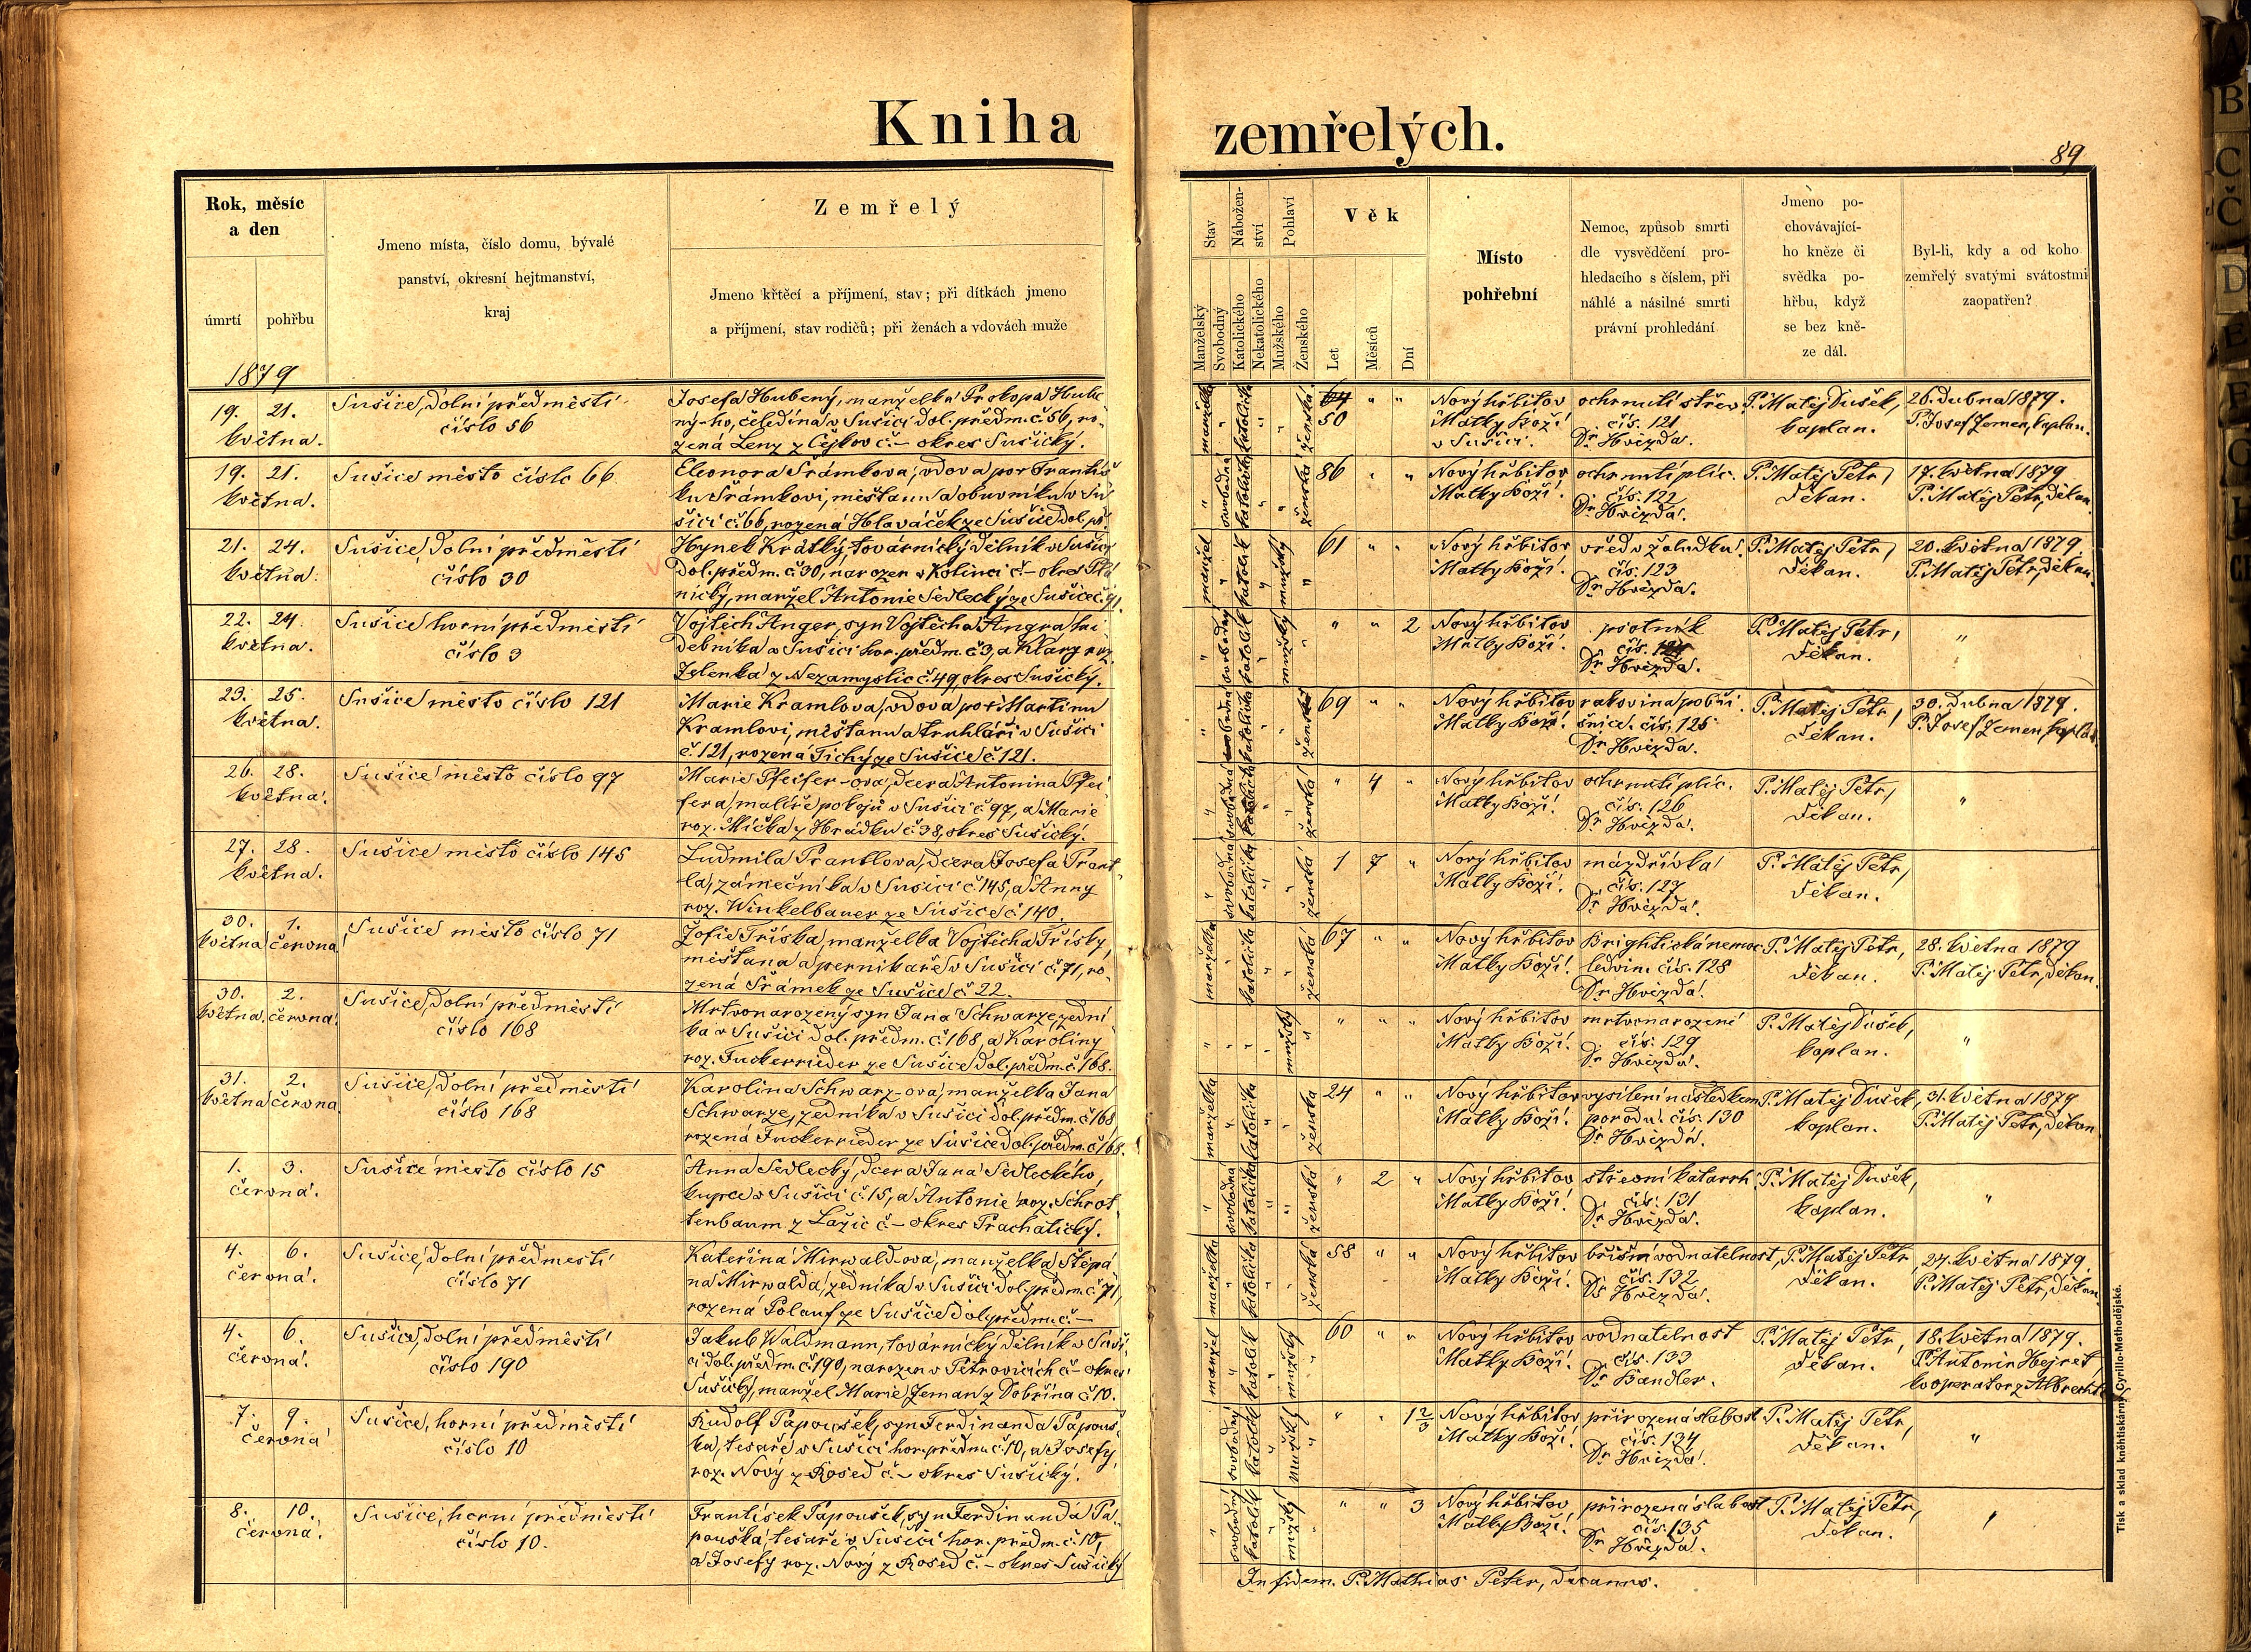 Kniha zemřelých.
89
Rok, měsíc
a den
úmrtí
pohřbu
1879
Jmeno místa, číslo domu, bývalé
panství, okresní hejtmanství,
kraj
Zemřelý
Jmeno křtěcí a příjmení, stav; při dítkách jmeno
a příjmení, stav rodičů; při ženách a vdovách muže
Stav
Nábožen-
ství
Pohlaví
Manželský
Svobodný
Katolického
Nekatolického
Mužského
Ženského
Věk
Let
Měsíců
Dní
Místo
pohřební
Nemoc, způsob smrti
dle vysvědčení pro-
hledacího s číslem, při
náhlé a násilné smrti
právní prohledání
Jmeno po-
chovávající-
ho kněze či
svědka po-
hřbu, když
se bez kně-
ze dál.
Byl-li, kdy a od koho
zemřelý svatými svátostmi
zaopatřen?
19. 21.
května.
Sušice, dolní předměstí
číslo 56
Josefa Hubený, manželka Prokopa Hube-
ný-ho, čeledína v Sušici dol. předm. č. 56, ro-
zená Lenz z Čejkov č. – okres Sušický.
manželka " katolička " " ženská
64 " "
50
Nový hřbitov
Matky Boží
v Sušici.
ochrnutí střev
čís. 121
Dr Hvězda.
P. Matěj Dušek,
kaplan.
26. dubna 1879.
P. Josef Zemen, kaplan.
19. 21.
května.
Sušice město číslo 66
Eleonora Šrámkova, vdova po Františ-
ku Šrámkovi, měšťanu a obuvníku v Su-
šici č. 66, rozená Hlaváček ze Sušice dol. př.
" svobodná katolička " " ženská
86 " "
Nový hřbitov
Matky Boží.
ochrnutí plic.
čís. 122
Dr Hvězda.
P. Matěj Petr,
děkan.
17. května 1879
P. Matěj Petr, děkan.
21. 24.
května.
Sušice, dolní předměstí
číslo 30
Hynek Krátký, továrnický dělník v Sušici
dol. předm. č. 30, narozen v Kolinci č. – okres Pla-
nický, manžel Antonie Sedlecký ze Sušice č. 91.
manžel " katolík " mužský "
61 " "
Nový hřbitov
Matky Boží.
vřed v žaludku.
čís. 123
Dr Hvězda.
P. Matěj Petr,
děkan.
20. května 1879
P. Matěj Petr, děkan.
22. 24.
května.
Sušice horní předměstí
číslo 3
Vojtěch Anger, syn Vojtěcha Angra
v Sušici hor. předm. č. 3, a Klary roz.
Jelenka z Nezamyslic č. 49, okres Sušický.
" svobodný katolík " mužský "
" " 2
Nový hřbitov
Matky Boží.
psotník
čís.
Dr Hvězda.
P. Matěj Petr,
děkan.
"
23. 25.
května.
Sušice město číslo 121
Marie Kramlova, vdova po Martinu
Kramlovi, měšťanu a truhláři v Sušici
č. 121, rozená Tichý ze Sušice č. 121.
" svobodná katolička " " ženská
69 " "
Nový hřbitov
Matky Boží.
rakovina pobři-
šnice. čís. 125
Dr Hvězda.
P. Matěj Petr,
děkan.
30. dubna 1879.
P. Josef Zemen, kaplan
26. 28.
května.
Sušice město číslo 97
Marie Pfeifer-ova, dcera Antonina Pfei-
fera, malíře pokojů v Sušici č. 97, a Marie
roz. Míčka z Hrádku č. 38, okres Sušický.
" svobodná katolička " " ženská
" 4 "
Nový hřbitov
Matky Boží.
ochrnutí plic.
čís. 126
Dr Hvězda.
P. Matěj Petr,
děkan.
"
27. 28.
května.
Sušice město číslo 145
Ludmila Prantlova, dcera Josefa Prant-
la, zámečníka v Sušici č. 145, a Anny
roz. Winkelbauer ze Sušice č. 140.
" svobodná katolička " " ženská
1 7 "
Nový hřbitov
Matky Boží.
mázdřivka
čís. 127
Dr Hvězda.
P. Matěj Petr,
děkan.
30. 1.
května června
Sušice město číslo 71
Žofie Tříska, manželka Vojtěcha Třísky,
měšťana a pernikaře v Sušici č. 71, ro-
zená Šrámek ze Sušice č. 22.
manželka " katolička " " ženská
67 " "
Nový hřbitov
Matky Boží.
Brightická nemoc
ledvin. čís. 128
Dr Hvězda.
P. Matěj Petr,
děkan.
28. května 1879
P. Matěj Petr, děkan.
30. 2.
května. června.
Sušice, dolní předměstí
číslo 168
Mrtvonarozený syn Jana Schwarze, zední-
ka v Sušici dol. předm. č. 168, a Karoliny
roz. Fuckerrieder ze Sušice dol. předm. č. 168.
" " " " mužský "
" " "
Nový hřbitov
Matky Boží.
mrtvonarozené
čís. 129
Dr Hvězda.
P. Matěj Dušek,
kaplan.
"
31. 2.
května června.
Sušice, dolní předměstí
číslo 168
Karolina Schwarz-ova, manželka Jana
Schwarze, zedníka v Sušici dol. předm. č. 168,
rozená Fuckerrieder ze Sušice dol. předm. č. 168.
manželka " katolička " " ženská
24 " "
Nový hřbitov
Matky Boží.
vysílení následkem
porodu. čís. 130
Dr Hvězda.
P. Matěj Dušek,
kaplan.
31. května 1879
P. Matěj Petr, děkan
1. 3.
června.
Sušice město číslo 15
Anna Sedlecký, dcera Jana Sedleckého,
kupce v Sušici č. 15, a Antonie roz. Schrot-
tenbaum z Lažic č. – okres Prachatický.
" svobodná katolička " " ženská
" 2 "
Nový hřbitov
Matky Boží.
střevní katarrh
čís. 131
Dr Hvězda.
P. Matěj Dušek,
kaplan.
"
4. 6.
června.
Sušice, dolní předmestí
číslo 71
Kateřina Mirwald-ova, manželka Štěpá-
na Mirwalda, zedníka v Sušici dol. předm. č. 71,
rozená Polauf ze Sušice dol. předm. č. –
manželka " katolička " " ženská
58 " "
Nový hřbitov
Matky Boží.
břišní vodnatelnost,
čís. 132
Dr Hvězda.
P. Matěj Petr
děkan.
24. května 1879.
P. Matěj Petr, děkan.
4. 6.
června.
Sušice, dolní předměstí
číslo 190
Jakub Waldmann, továrnický dělník v Suši-
ci dol. předm. č. 190, narozen v Petrovicích č. – okres
Sušický, manžel Marie Zeman z Dobřína č. 10.
manžel " katolík " mužský "
60 " "
Nový hřbitov
Matky Boží.
vodnatelnost
čís. 133
Dr Bandler.
P. Matěj Petr,
děkan.
18. května 1879.
P. Antonín Hejret
kooperator z Albrechtic
7. 9.
června
Sušice, horní předměstí
číslo 10
Rudolf Papoušek, syn Ferdinanda Papouš-
ka, tesaře v Sušici hor. předm. č. 10, a Josefy,
roz. Nový z Rosed č. – okres Sušický.
" svobodný katolík " mužský "
" " 1 2/3
Nový hřbitov
Matky Boží.
přirozená slabost
čís. 134
Dr Hvězda.
P. Matěj Petr,
děkan.
"
8. 10.
června.
Sušice, horní předměstí
číslo 10.
František Papoušek, syn Ferdinanda Pa-
pouška, tesaře v Sušici hor. předm. č. 10,
a Josefy roz. Nový z Rosed č. – okres Sušický
" svobodný katolík " mužský "
" " 3
Nový hřbitov
Matky Boží.
přirozená slabost
čís. 135
Dr Hvězda.
P. Matěj Petr,
děkan.
"
In fidem. P. Mathias Peter, decanus.
Tisk a sklad kněhtiskárny Cyrillo-Methodějské.
A
B
C
Č
D
E